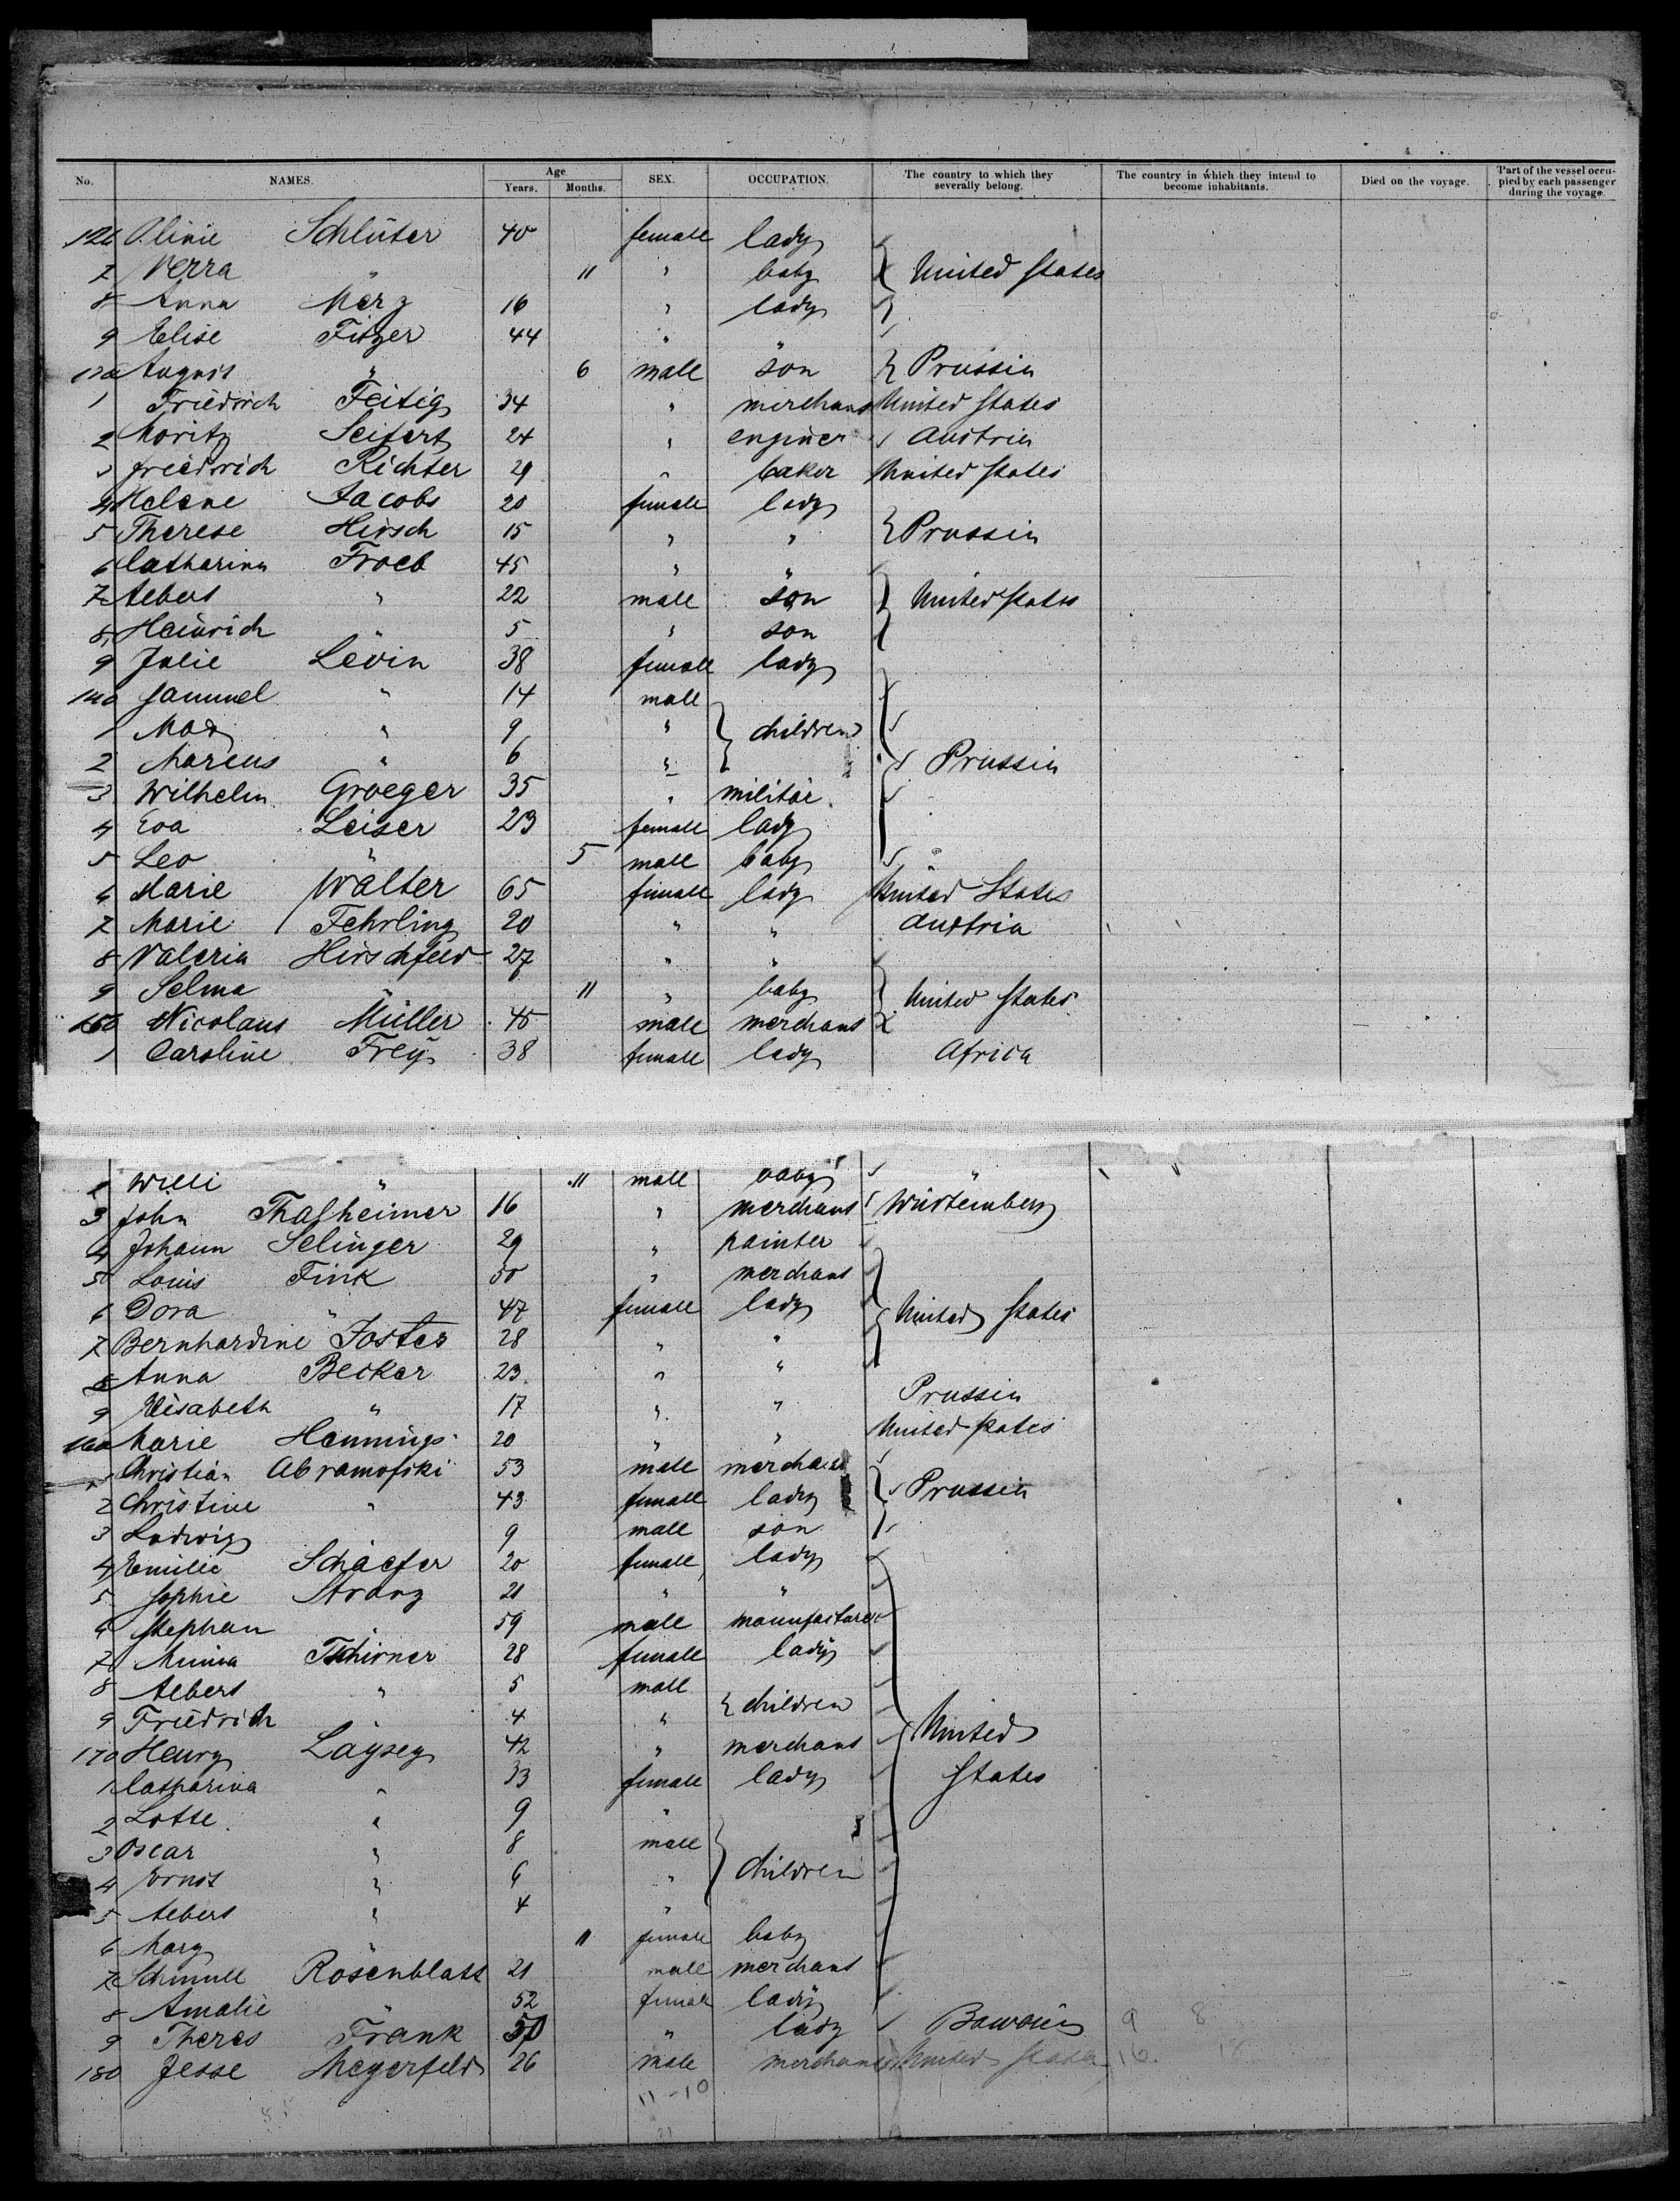 No. NAMES. Age Years. Months. SEX. OCCUPATION. The country to which they severally belong. The country in which they intend to become inhabitants. Died on the voyage. Part of the vessel occupied by each passenger during the voyage.
126 Olinie Schlüter 40 female lady
7 Verra " 11 " baby United States
8 Anna Merz 16 " lady
9 Elise Fitzer 44 " "
130 August " 6 male son Prussia
1 Friedrich Feitig 34 " merchant United States
2 Moritz Seifert 24 " enginer Austria
3 Friedrich Richter 29 " baker United States
4 Helene Jacobs 20 female lady
5 Therese Hirsch 15 " " Prussia
6 Catharina Froeb 45 " "
7 Albert " 22 male son United States
8 Heinrich " 5 " son
9 Julie Levin 38 female lady
140 Sammel " 14 male
1 Max " 9 " children
2 Marcus " 6 " Prussia
3 Wilhelm Groeger 35 " militär
4 Eva Leiser 23 female lady
5 Leo " 5 male baby
6 Marie Walter 65 female lady United States
7 Marie Fehrling 20 " " Austria
8 Valeria Hirschfeld 27 " "
9 Selma " 11 " baby United States
150 Nicolaus Müller 45 male merchant
1 Caroline Frey 38 female lady Africa
2 Willi " 11 male baby "
3 John Thalheimer 16 " merchant Würtemberg
4 Johann Selinger 29 " painter
5 Louis Fink 50 " merchant
6 Dora " 47 female lady United States
7 Bernhardine Joster 28 " "
8 Anna Becker 23 " "
9 Elisabeth " 17 " " Prussia
160 Marie Hennings 20 " " United States
1 Christian Abramofski 53 male merchant
2 Christine " 43 female lady Prussia
3 Ludwig 9 male son
4 Emilie Schaefer 20 female lady
5 Sophie Stranz 21 " "
6 Stephan " 59 male manufacturer
7 Minna Tschirner 28 female lady
8 Albert " 5 male
9 Friedrich " 4 " children
170 Henry Laysey 42 " merchant United
1 Catharina " 33 female lady States
2 Lotte " 9 "
3 Oscar " 8 male
4 Ernst " 6 " children
5 Albert " 4 "
6 Mary " 11 female baby
7 Schmull Rosenblatt 21 male merchant
8 Amalie " 52 female lady
9 Theres Frank 50 " lady 9 8
180 Jesse Meyerfeld 26 male merchant United States 16
11-10